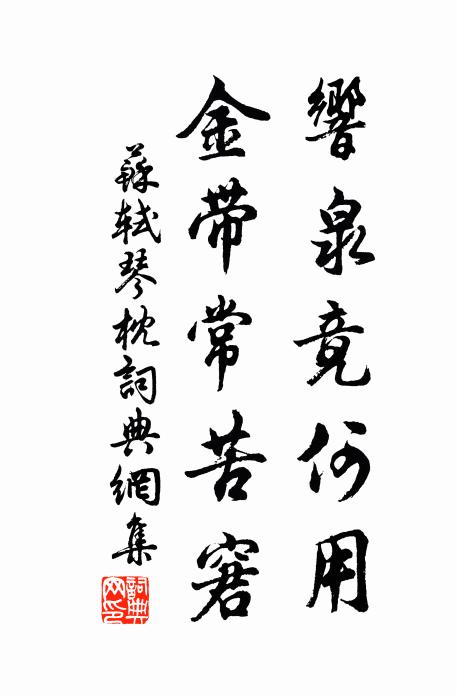 響泉竟何用
金帶常苦窘
蘇軾琴枕詞典網集
詞典
网印